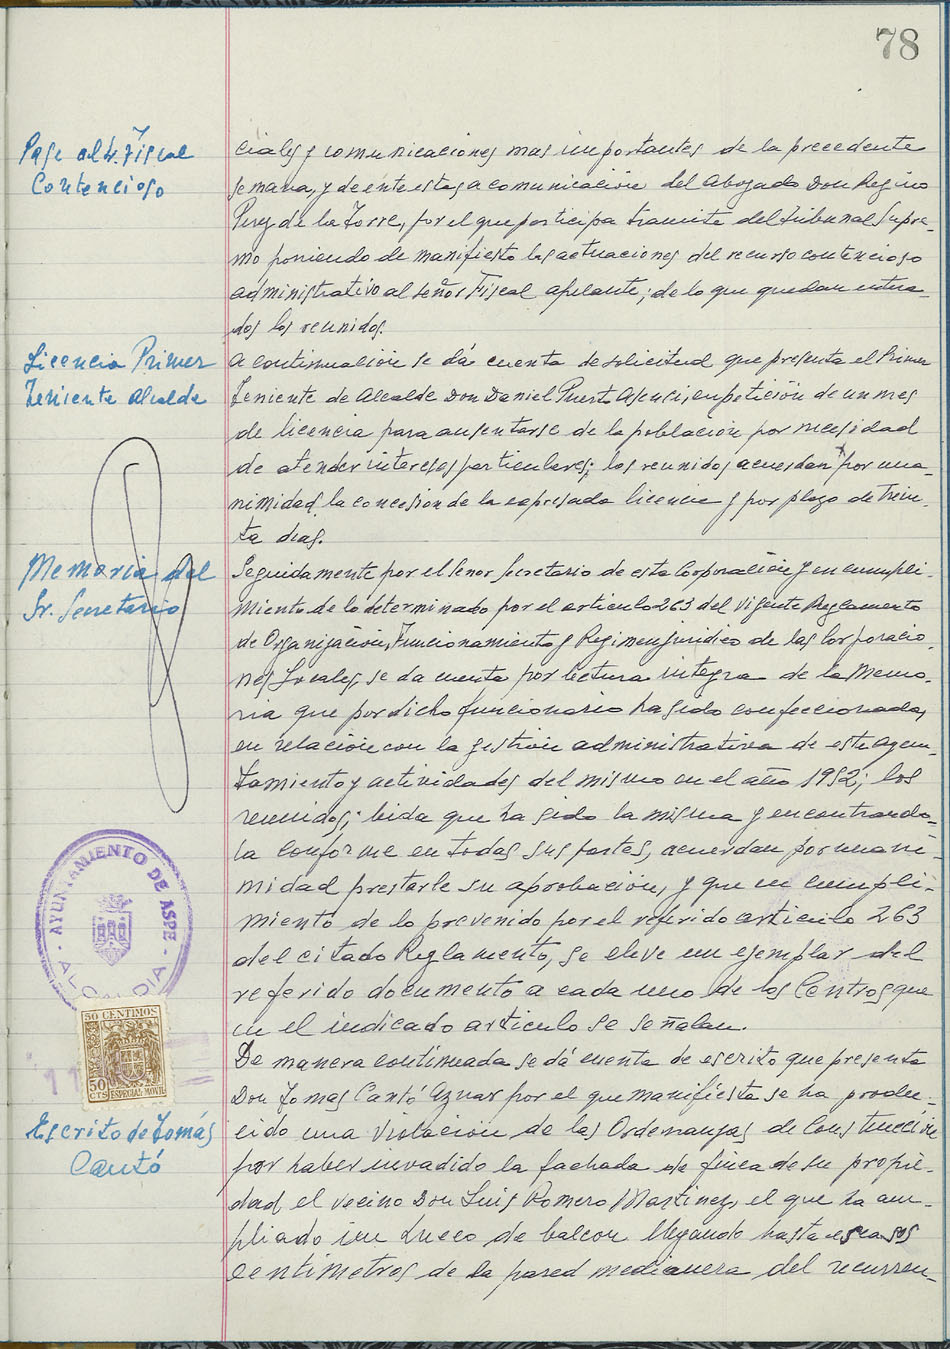 78
Pase al Sr. Fiscal
Contencioso
ciales y comunicaciones mas importantes de la precedente
semana, y de entre estas a comunicación del Abogado Don Regino
Perez de la Torre, por el que participa tramite del Tribunal Supre-
mo poniendo de manifiesto las actuaciones del recurso contencioso
administrativo al señor Fiscal apelante; de lo que quedan entera-
dos los reunidos.
Licencia Primer
Teniente Alcalde
A continuación se dá cuenta de solicitud que presenta el Primer
Teniente de Alcalde Don Daniel Puerto Asensi, en petición de un mes
de licencia para ausentarse de la población por necesidad
de atender intereses particulares; los reunidos acuerdan por una-
nimidad, la concesión de la expresada licencia y por plazo de trein-
ta dias.
Memoria del
Sr. Secretario
Seguidamente por el Señor Secretario de esta Corporación y en cumpli-
miento de lo determinado por el articulo 263 del vigente Reglamento
de Organización, Funcionamiento y Regimen juridico de las Corporacio-
nes Locales, se da cuenta por lectura integra de la Memo-
ria que por dicho funcionario ha sido confeccionada,
en relación con la gestión administrativa de este Ayun-
tamiento y actividades del mismo en el año 1952; los
reunidos; leida que ha sido la misma y encontrando-
la conforme en todas sus partes, acuerdan por unani-
midad prestarle su aprobación, y que en cumpli-
miento de lo prevenido por el referido articulo 263
del citado Reglamento, se eleve un ejemplar del
referido documento a cada uno de los Centros que
en el indicado articulo se señalan.
AYUNTAMIENTO DE ASPE
ALCALDIA
50 CENTIMOS
50
CTS ESPECIAL MOVIL
Escrito de Tomás
Cantó
De manera continuada se dá cuenta de escrito que presenta
Don Tomas Cantó Aznar por el que manifiesta se ha produ-
cido una violación de las Ordenanzas de Construcción
por haber invadido la fachada de finca de su propie-
dad, el vecino Don Luis Romero Martinez, el que ha am-
pliado un hueco de balcon llegando hasta escasos
centimetros de la pared medianera del recurren-